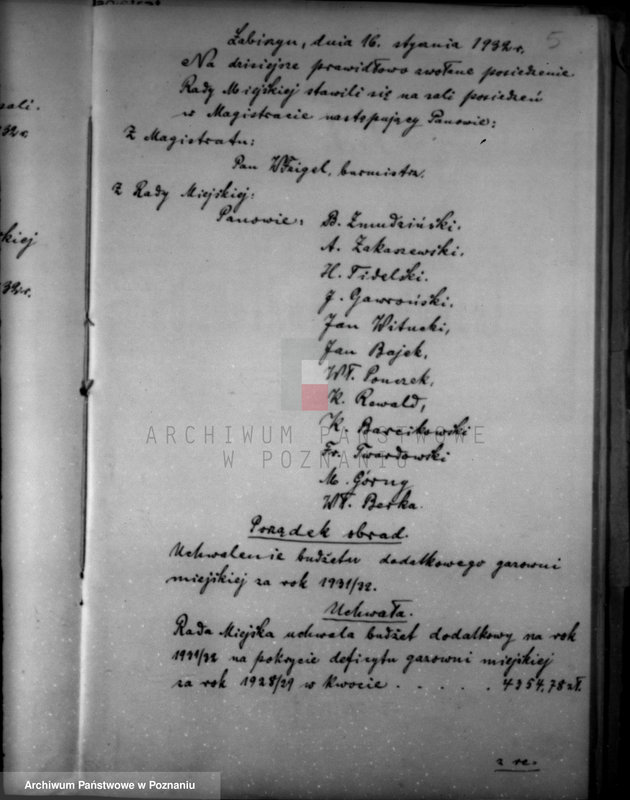 Magistrat
Łabiszyn, dnia 16. stycznia 1932 r. 5
Na dzisiejsze prawidłowo zwołane posiedzenie
Rady Miejskiej stawili się na sali posiedzeń
w Magistracie następujący Panowie:
Z Magistratu:
Pan Weigel, burmistrz.
Z Rady Miejskiej:
Panowie: B. Żmudziński,
A. Zakaszewski,
H. Fidelski.
J. Gawroński,
Jan Witucki,
Jan Bajek,
Wł. Ponczek,
K. Rewald,
K. Barcikowski
Fr. Twardowski
M. Górny
Wł. Berka.
Porządek obrad.
Uchwalenie budżetu dodatkowego gazowni
miejskiej za rok 1931/32.
Uchwała.
Rada Miejska uchwala budżet dodatkowy na rok
1931/32 na pokrycie deficytu gazowni miejskiej
za rok 1928/29 w kwocie . . . . . . 4354,78 zł.
ARCHIWUM PAŃSTWOWE
W POZNANIU
Archiwum Państwowe w Poznaniu